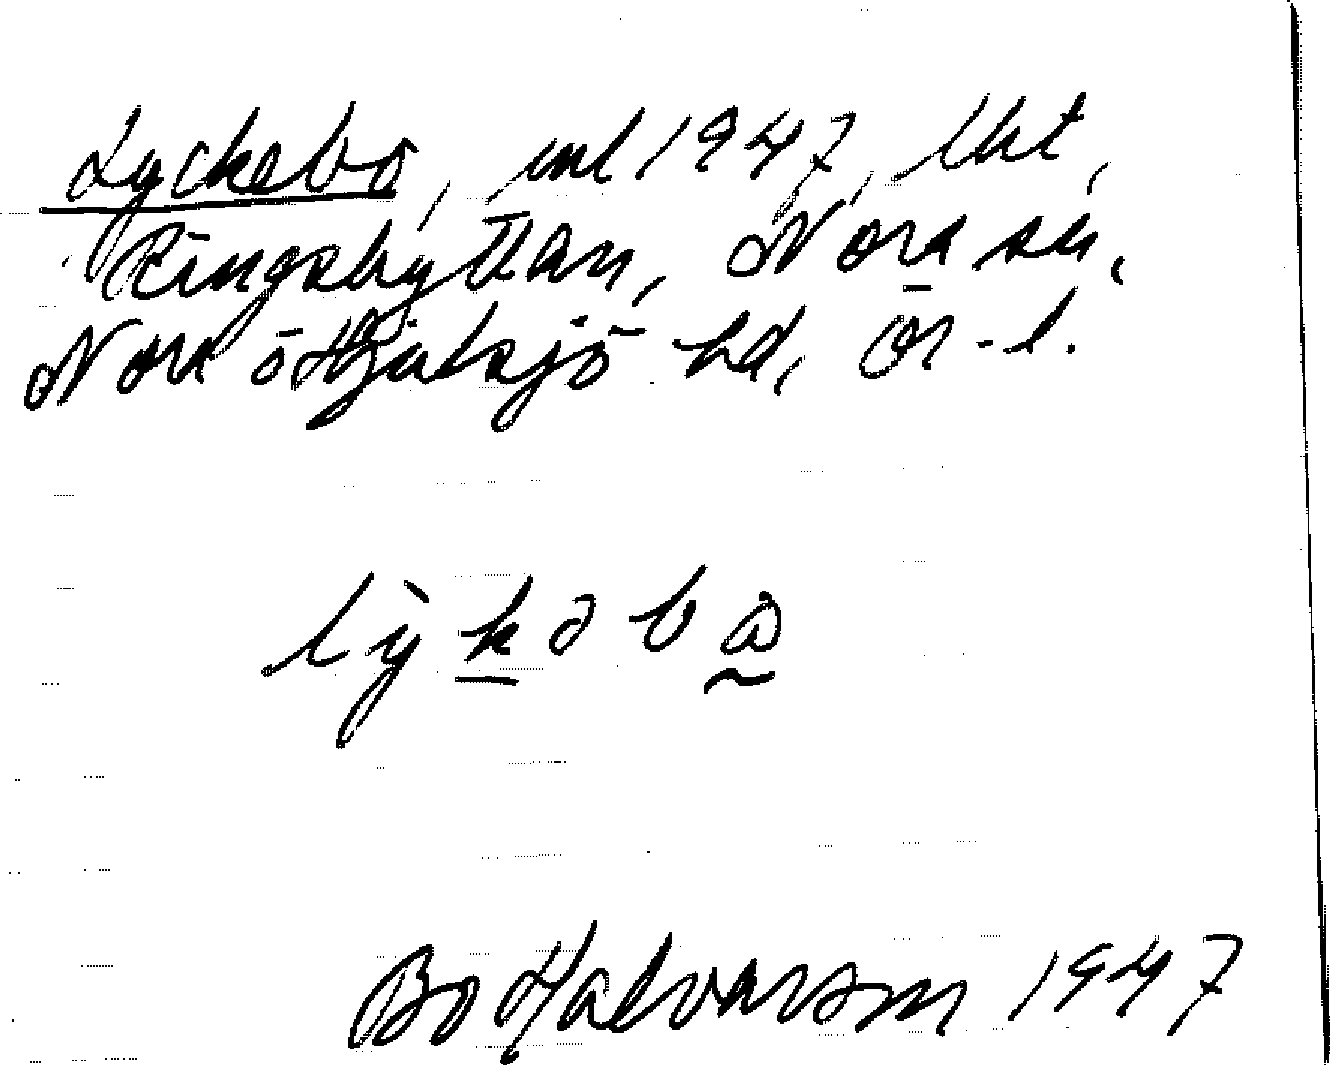 Lyckebo, enl 1947, lht,
Ringshyttan, Nora sn,
Nora o Hjulsjö hd, Ör-l.
lỳkəbω
Bo Halvarson 1947